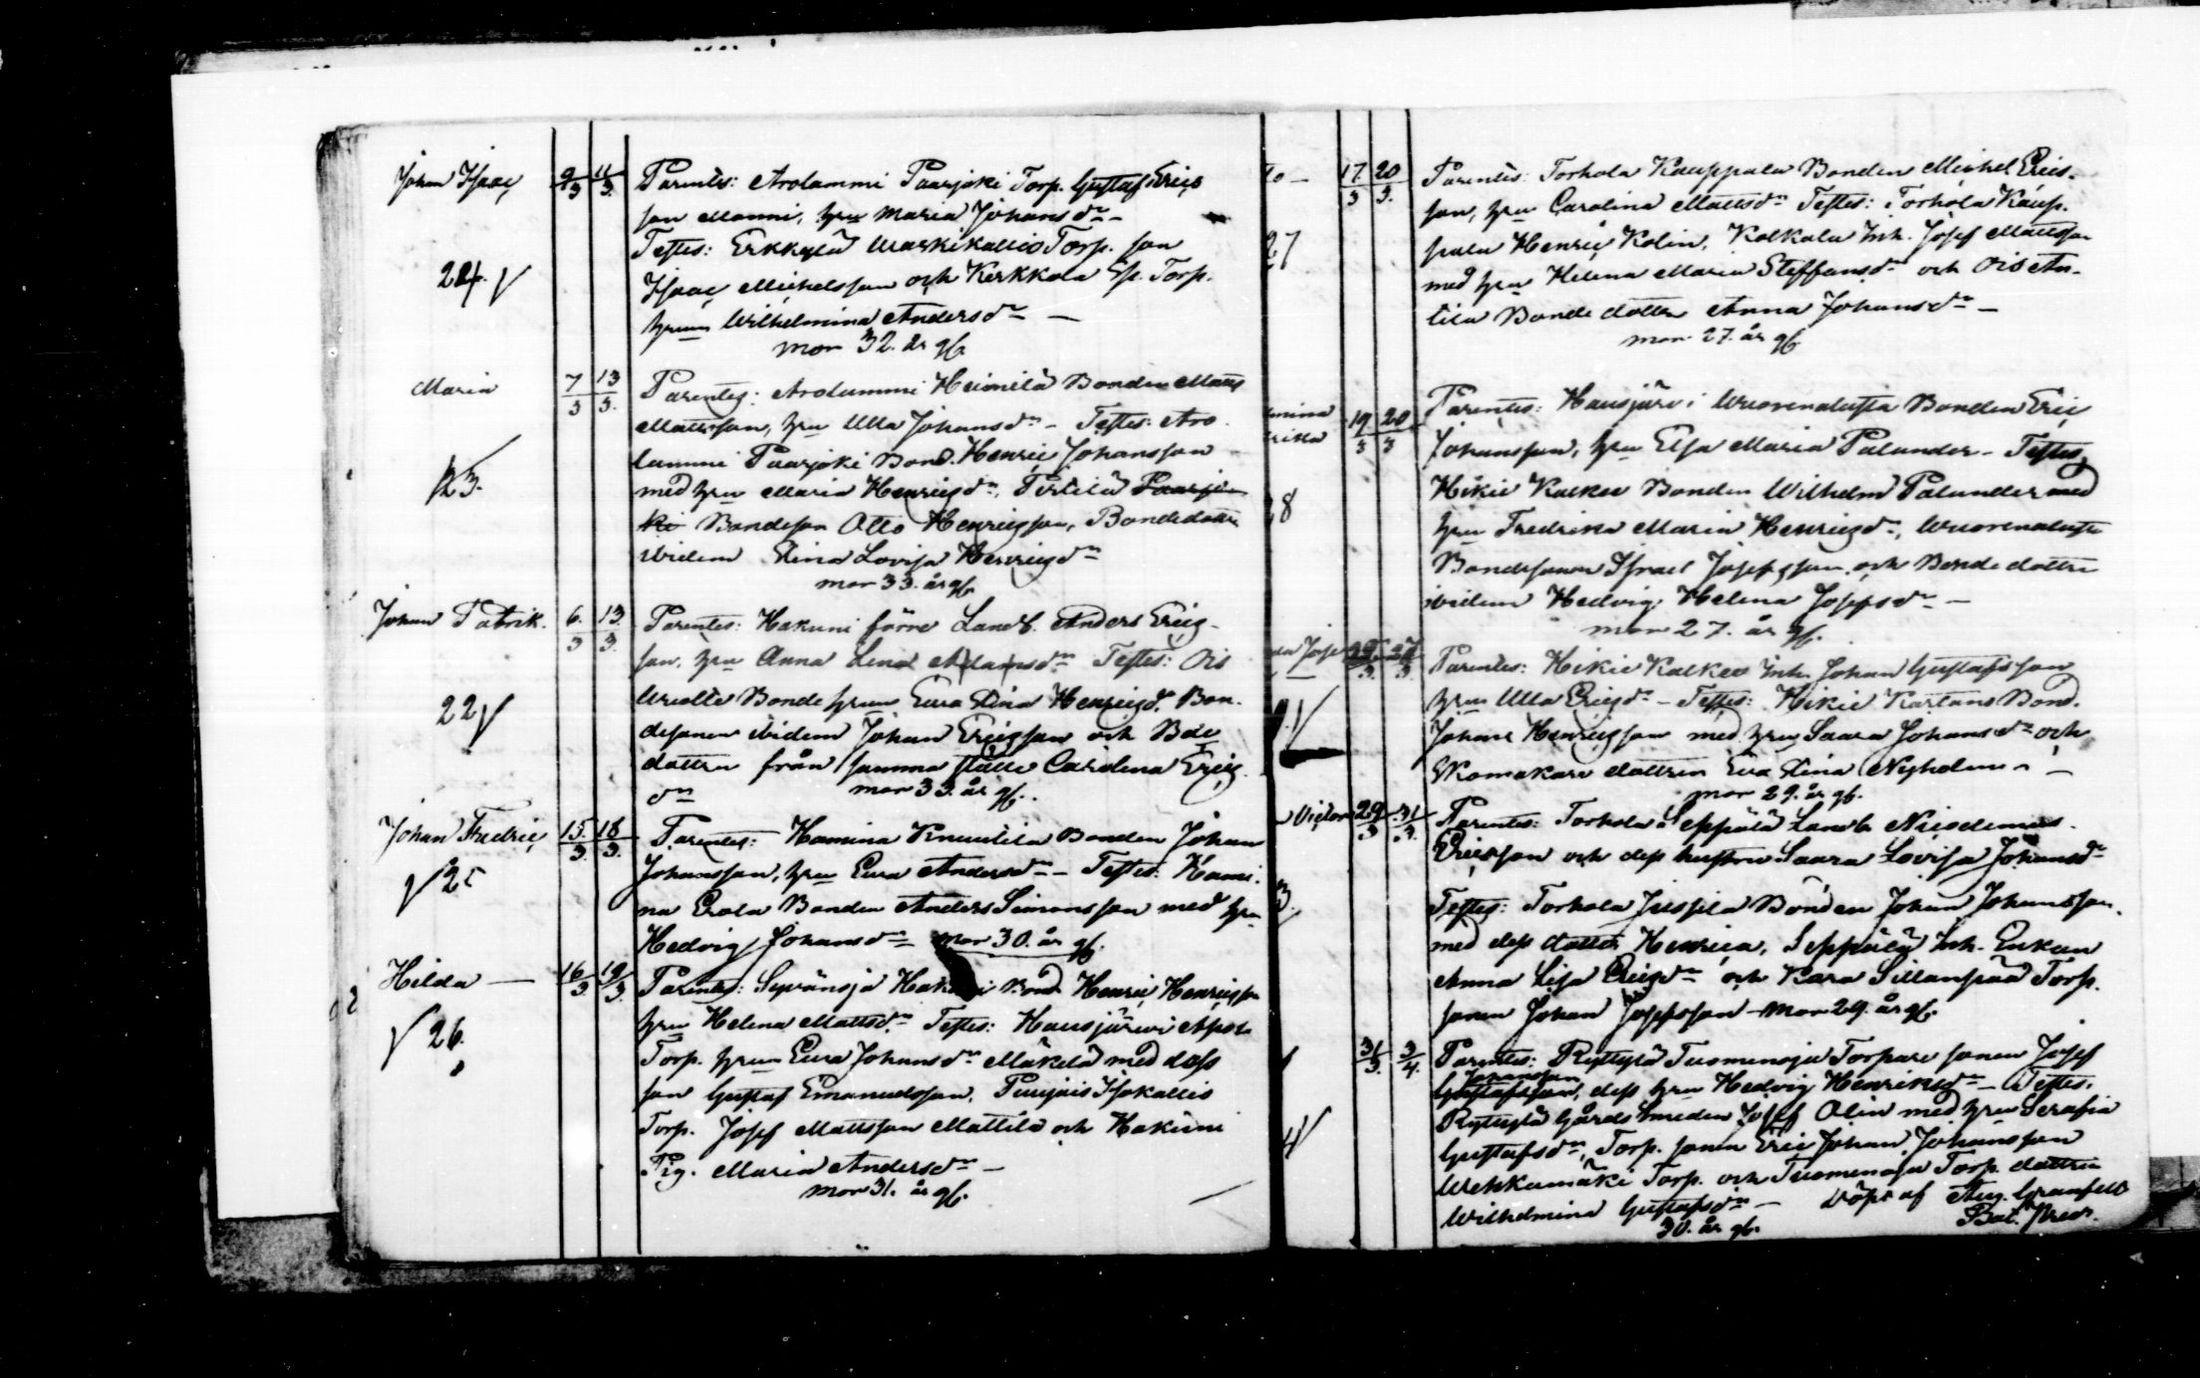 Johan Isaac 9/3 11/3 Parentes: Arolammi Paarjoki Torp. Gustaf Erics
son Manni, hru Maria Johansdr –
Testes: Erkkylä Waskikallio Torp. son
24. Isaac Michelsson och Kerkkola Torp.
hrun Wilhelmina Andersdr –
mor 32. år gf.
Maria 7/3 13/3. Parentes: Arolammi Heinilä Bonden Matts
Mattsson, hru Ulla Johansdr – Testes: Aro
lammi Paarjoki Bond. Henric Johansson
23. med hru Maria Henricsdr, Pertilä Paarjo
ki Bondeson Otto Henricsson, Bondedottr
ibidem Stina Lovisa Henricsdr
mor 33. år gf.
Johan Patrik. 6./3 13./3. Parentes: Hakuni förre Landb. Anders Erics-
son, hru Anna Lena Adamsdr Testes: Ois
Uotte Bonde hrun Eva Stina Henricsdr Bon.
22 desonen ibidem Johan Ericsson och Bde
dottren från samma ställe Carolina Erics
dr mor 33. år gf.
Johan Fredric 15./3. 18/3. Parentes: Hamina Knuutila Bonden Johan
Johansson, hru Eva Andersdr – Testes: Hami-
25 na Erola Bonden Anders Simonsson med hru
Hedvig Johansdr mor 30. år gf.
Hilda — 16/3 19/3 Parentes: Syvänoja Bond Henric Henricsson
hru Helena Mattsdr Testes: Hausjärwi
26. Torp. hrun Eva Johansdr Mäkelä med dess
son Gustaf Emanuelsson, Puujois Isokallio
Torp. Josef Mattsson Mattila och Hakuni
Pig. Maria Andersdr –
mor 31. år gf.
17./3 20/3. Parentes: Torhola Kauppala Bonden Michel Erics-
son, hru Carolina Mattsdr Testes: Torhola Kaup-
27 pala Henric Kolin, Kolkala Inh. Josef Mattsson
med hru Helena Maria Steffansdr och Ois An-
tila Bonde dottr Anna Johansdr –
mor 27. år gf.
19/3 20/3 Parentes: Hausjärvi Wuorenalusta Bonden Eric
Johansson, hru Elsa Maria Palander – Testes
28 Hikiä Kalkee Bonden Wilhelm Palander med
hru Fredrika Maria Henricsdr, Wuorenalusta
Bondesonen Israel Josefsson och Bonde dottren
ibidem Hedvig Helena Josefsdr –
mor 27. år gf.
Parentes: Hikiä Kalkee Inh. Johan Gustafsson
hru Ulla Ericsdr – Testes: Hikiä Kartano Bond.
Johan Henricsson med hru Saara Johansdr och
Skomakare dottren Eva Stina Nyholm –
mor 29. år gf.
Victor 29/3 31/3. Parentes: Torhola Seppälä Landb. Nicodemus
Ericsson och dess hustru Saara Lovisa Johansdr
3. Testes: Torhola Jussila Bonden Johan Johansson
med dess dotter Henrica, Seppälä Inh. Enkan
Anna Lisa Ericsdr och Kara Sillanpää Torp.
sonen Johan Josefsson mor 29. år gf.
31/3. 3/4. Parentes: Ryttylä Tuomenoja Torpare sonen Josef
Johansson
Gustafsson, dess hru Hedvig Henriksdr – Testes:
4 Ryttylä Gårds smeden Josef Olin med hru Serafia
Gustafsdr, Torp. sonen Eric Johan Johansson
Wehkamäki Torp. och Tuomenoja Torp. dottren
Wilhelmina Gustafsdr – Döpt af Aug. Granfelt
30. år gf. Bat. Pred.